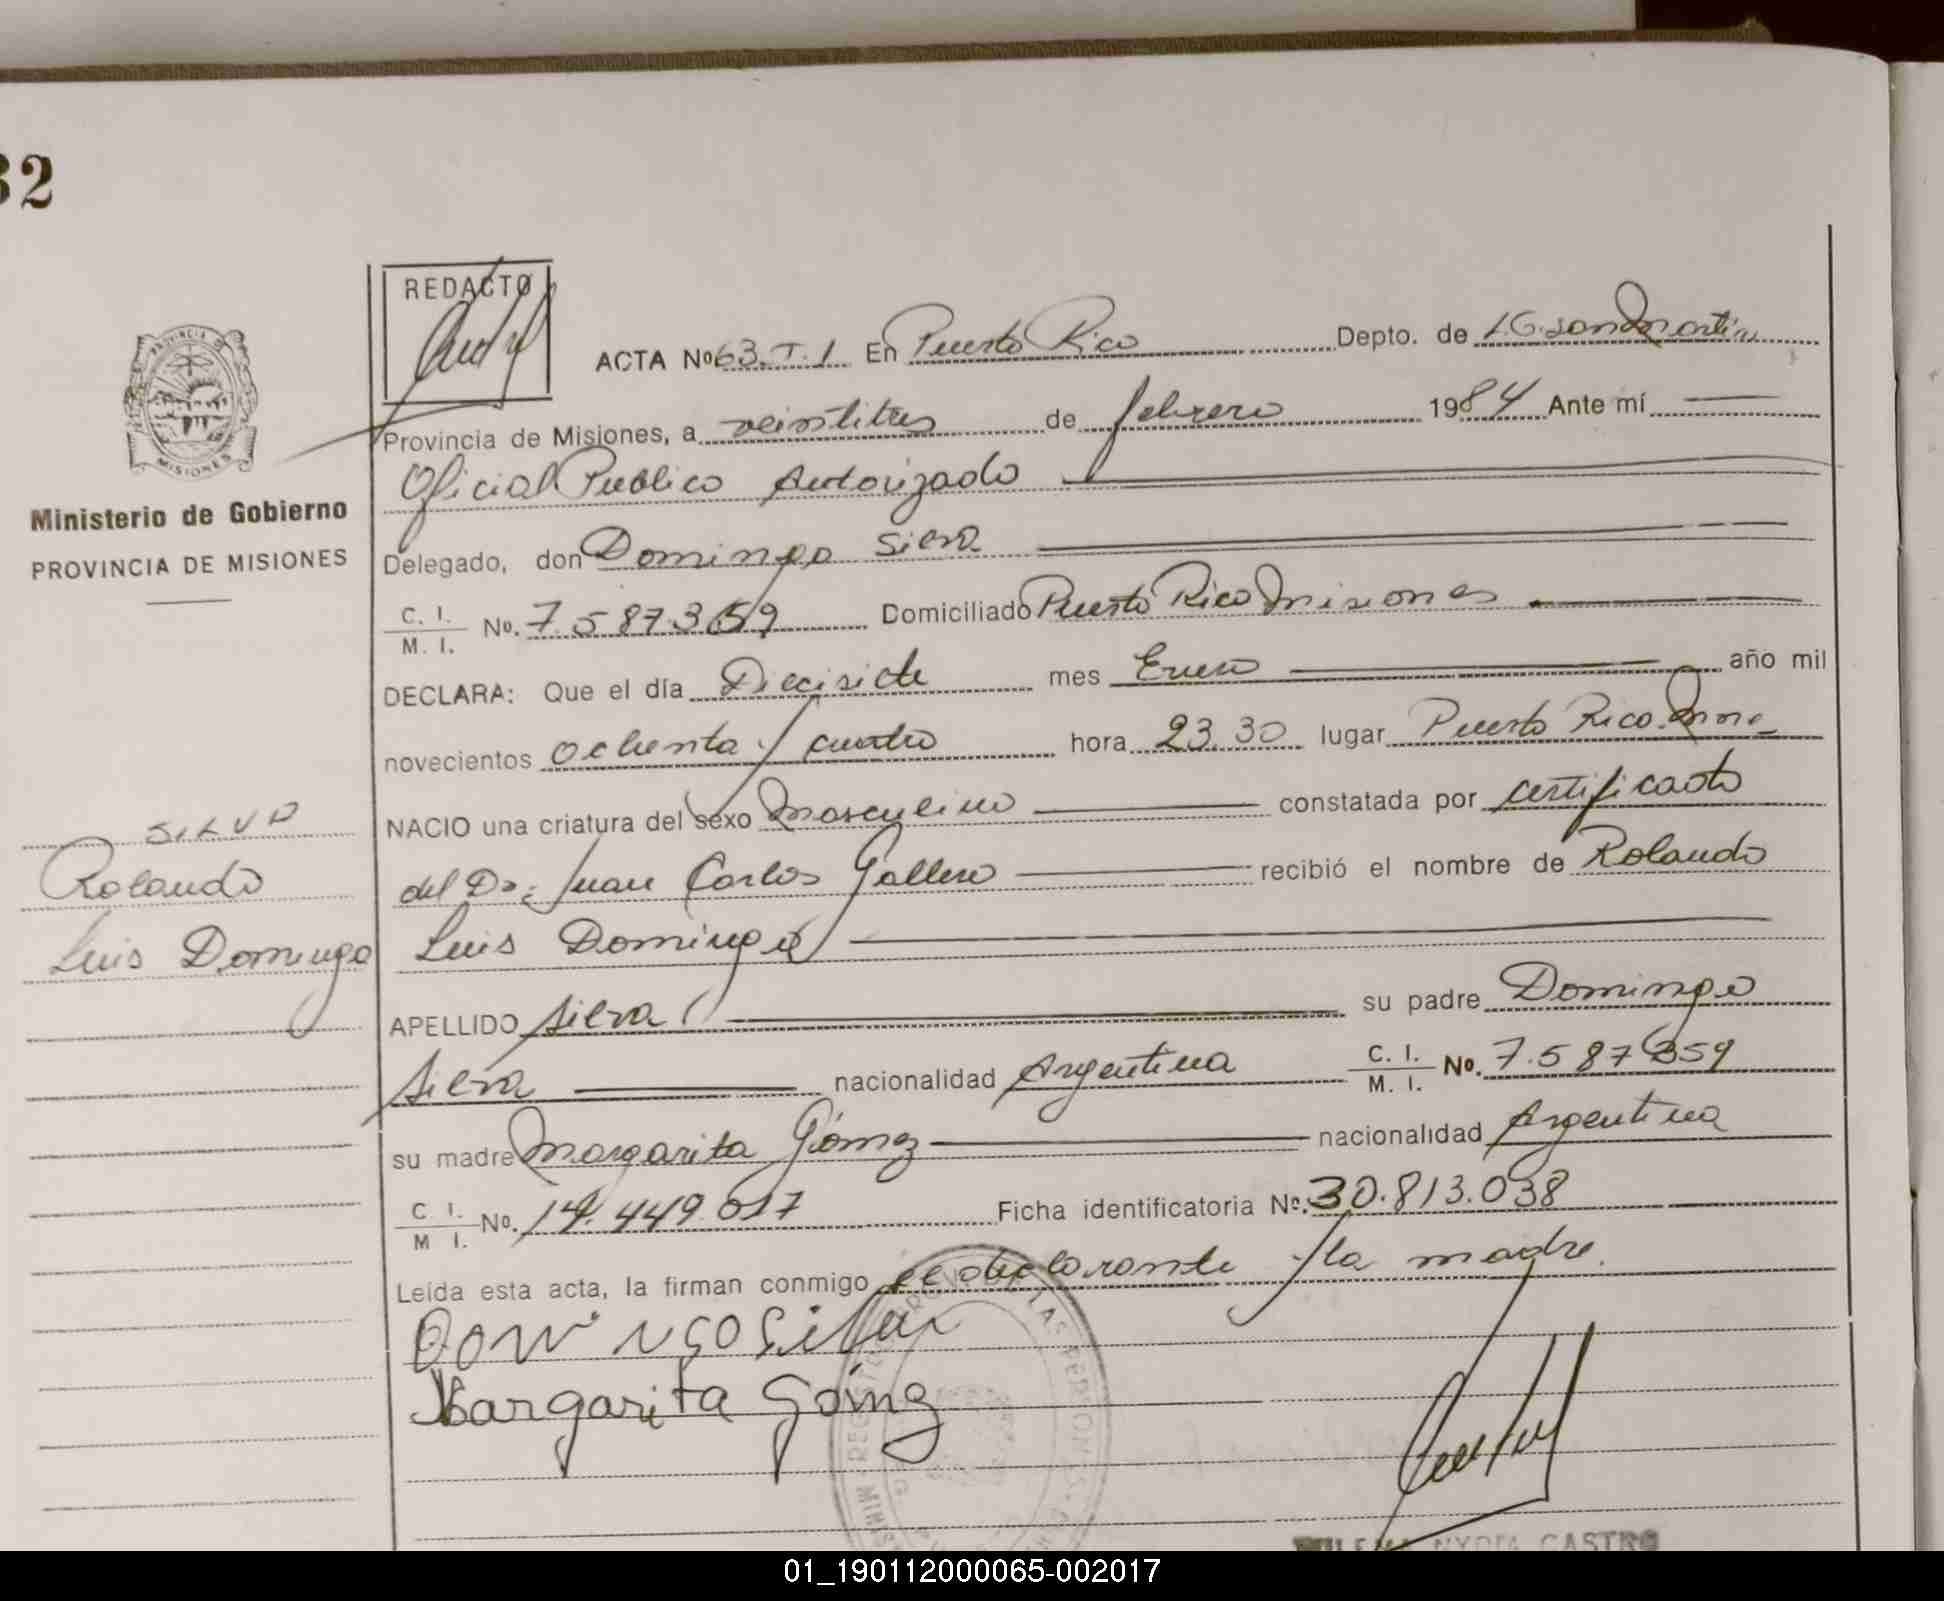 32
REDACTO
ACTA Nº 63.T.1 En Puerto Rico Depto. de L.G. San Martin
Provincia de Misiones, a veintitres de febrero 1984 Ante mí
Oficial Publico Autorizado
Delegado, don Domingo Silva
C. I. M. I. No. 7.587.359 Domiciliado Puerto Rico Misiones
DECLARA: Que el día Diecisiete mes Enero año mil
novecientos ochenta y cuatro hora 23.30 lugar Puerto Rico Mnes
NACIO una criatura del sexo Masculino constatada por certificado
del Dr: Juan Carlos Gallero recibió el nombre de Rolando
Luis Domingo
APELLIDO Silva su padre Domingo
Silva nacionalidad Argentina C. I. M. I. No. 7.587.359
su madre Margarita Gómez nacionalidad Argentina
C. I. M. I. No. 14.449.017 Ficha identificatoria Nº. 30.813.038
Leída esta acta, la firman conmigo el declarante y la madre.
Margarita Gómz
NYDIA CASTRO
PROVINCIA DE
MISIONES
Ministerio de Gobierno
PROVINCIA DE MISIONES
SILVA
Rolando
Luis Domingo
01_190112000065-002017